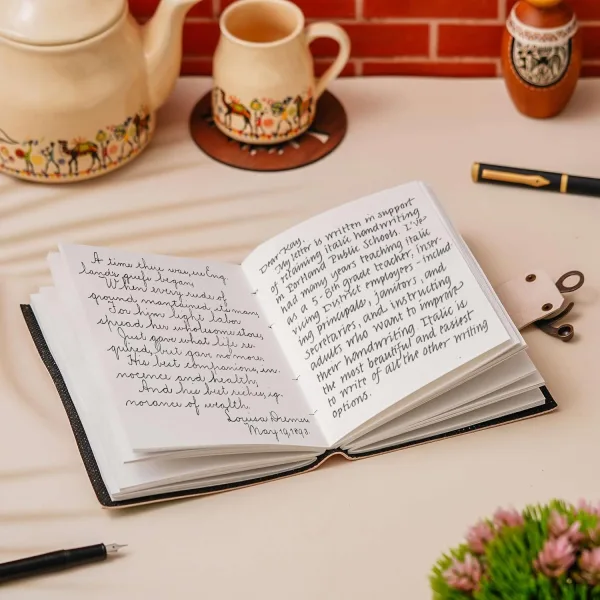 A time there was, ere Eng
land's griefs began,
When every rude of
ground maintained its man;
For him light labor
spread her wholesome store,
Just gave what life re-
quired, but gave no more.
His best companions, in-
nocence and health;
And his best riches, ig-
norance of wealth.
Louisa
May 19, 1898.
Dear Kay,
My letter is written in support
of retaining italic handwriting
in Portland Public Schools. I've
had many years teaching italic
as a 5-8th grade teacher, inser-
vicing District employees - includ
ing principals, janitors, and
secretaries, and instructing
adults who want to improve
their handwriting. Italic is
the most beautiful and easiest
to write of all the other writing
options.